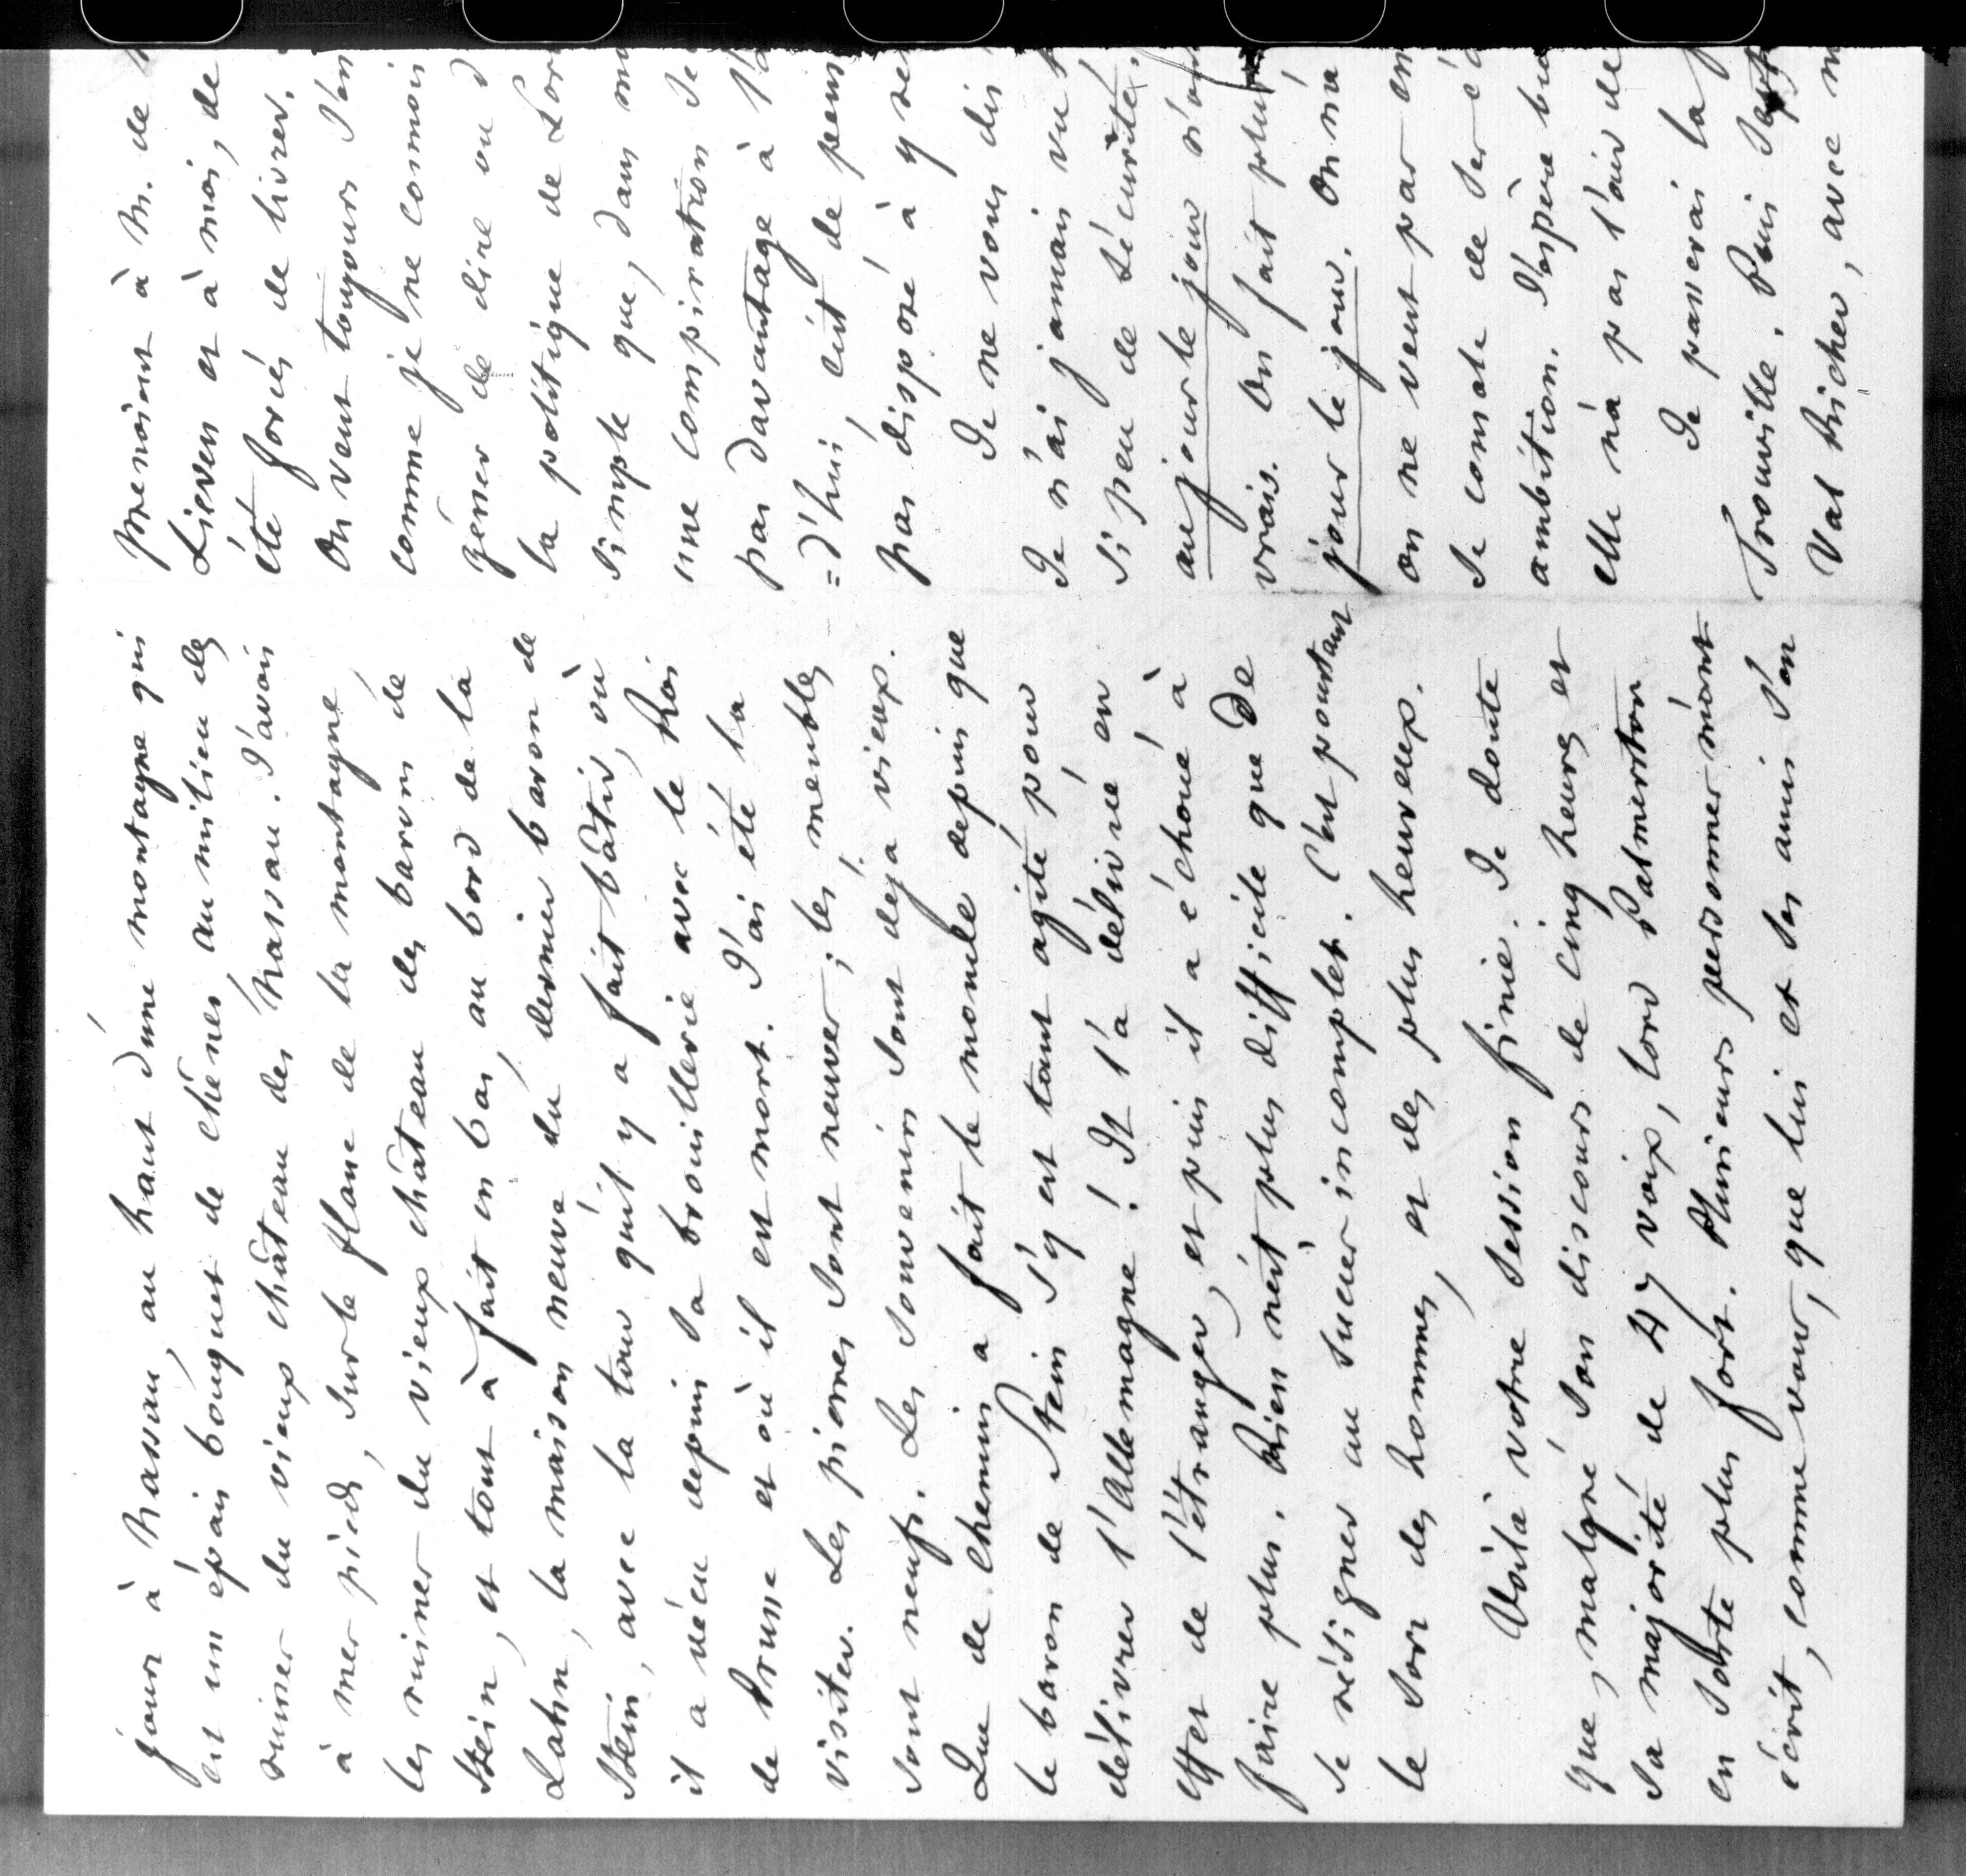 jours à Nassau, au haut d'une montagne qui
est un épais bouquet de chênes au milieu des
ruines du vieux château des Nassau. J'avois
à mes pieds, sur le flanc de la montagne,
les ruines du vieux château des barons de
Stein, et tout à fait en bas, au bord de la
Lahn, la maison neuve du dernier baron de
Stein, avec la tour qu'il y a fait bâtir, où
il a vécu depuis sa brouillerie avec le Roi
de Prusse et où il est mort. J'ai été la
visiter. Les pierres sont neuves; les meubles
sont neufs. Les souvenirs sont déjà vieux.
Que de chemin a fait le monde depuis que
le baron de Stein s'y est tant agité pour
délivrer l'Allemagne! Il l'a délivrée en
effet de l'étranger, et puis il a échoué à
faire plus. Rien n'est plus difficile que de
se résigner au succès incomplet. C'est pourtant
le sort des hommes, et des plus heureux.
Voilà votre session finie. Je doute
que, malgré son discours de cinq heures et
sa majorité de 47 voix, lord Palmerston
en sorte plus fort. Plusieurs personnes m'ont
écrit, comme vous, que lui et ses amis s'en
prenoient à M. de
Lieven et à moi, de
été forcés de livrer.
On veut toujours s'en
comme je ne connois
gêner de dire ou d
la politique de Lor
simple que, dans mo
une conspiration de
pas davantage à l'a
=d'hui, c'est de peu
pas disposé à y re
Je ne vous dis
Je n'ai jamais vu t
si peu de sécurité.
au jour le jour n'a
vrais. On fait plus
jour le jour. On n'a
on ne veut pas en
se console de ses
ambition. J'espère bie
elle n'a pas l'air de
Je passerai la
Trouville. Puis
Val Richer, avec m